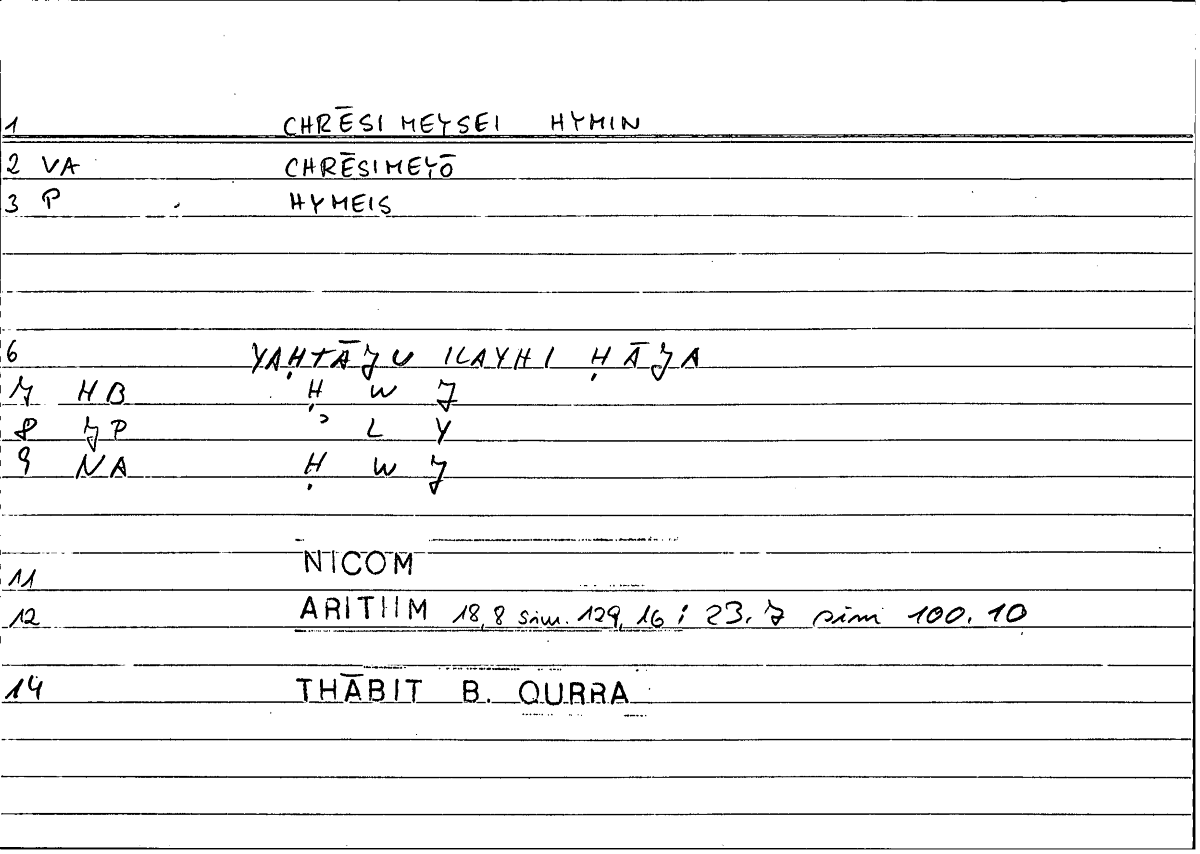 1 CHRĒSIMEYSEI HYMIN
2 VA CHRĒSIMEYŌ
3 P HYMEIS
6 YAḤTĀJU ILAYHI ḤĀJA
7 HB Ḥ W J
8 JP ʾ L Y
9 NA Ḥ W J
11 NICOM
12 ARITIIM 18,8 sim. 129,16; 23.7 sim 100.10
14 THĀBIT B. QURRA